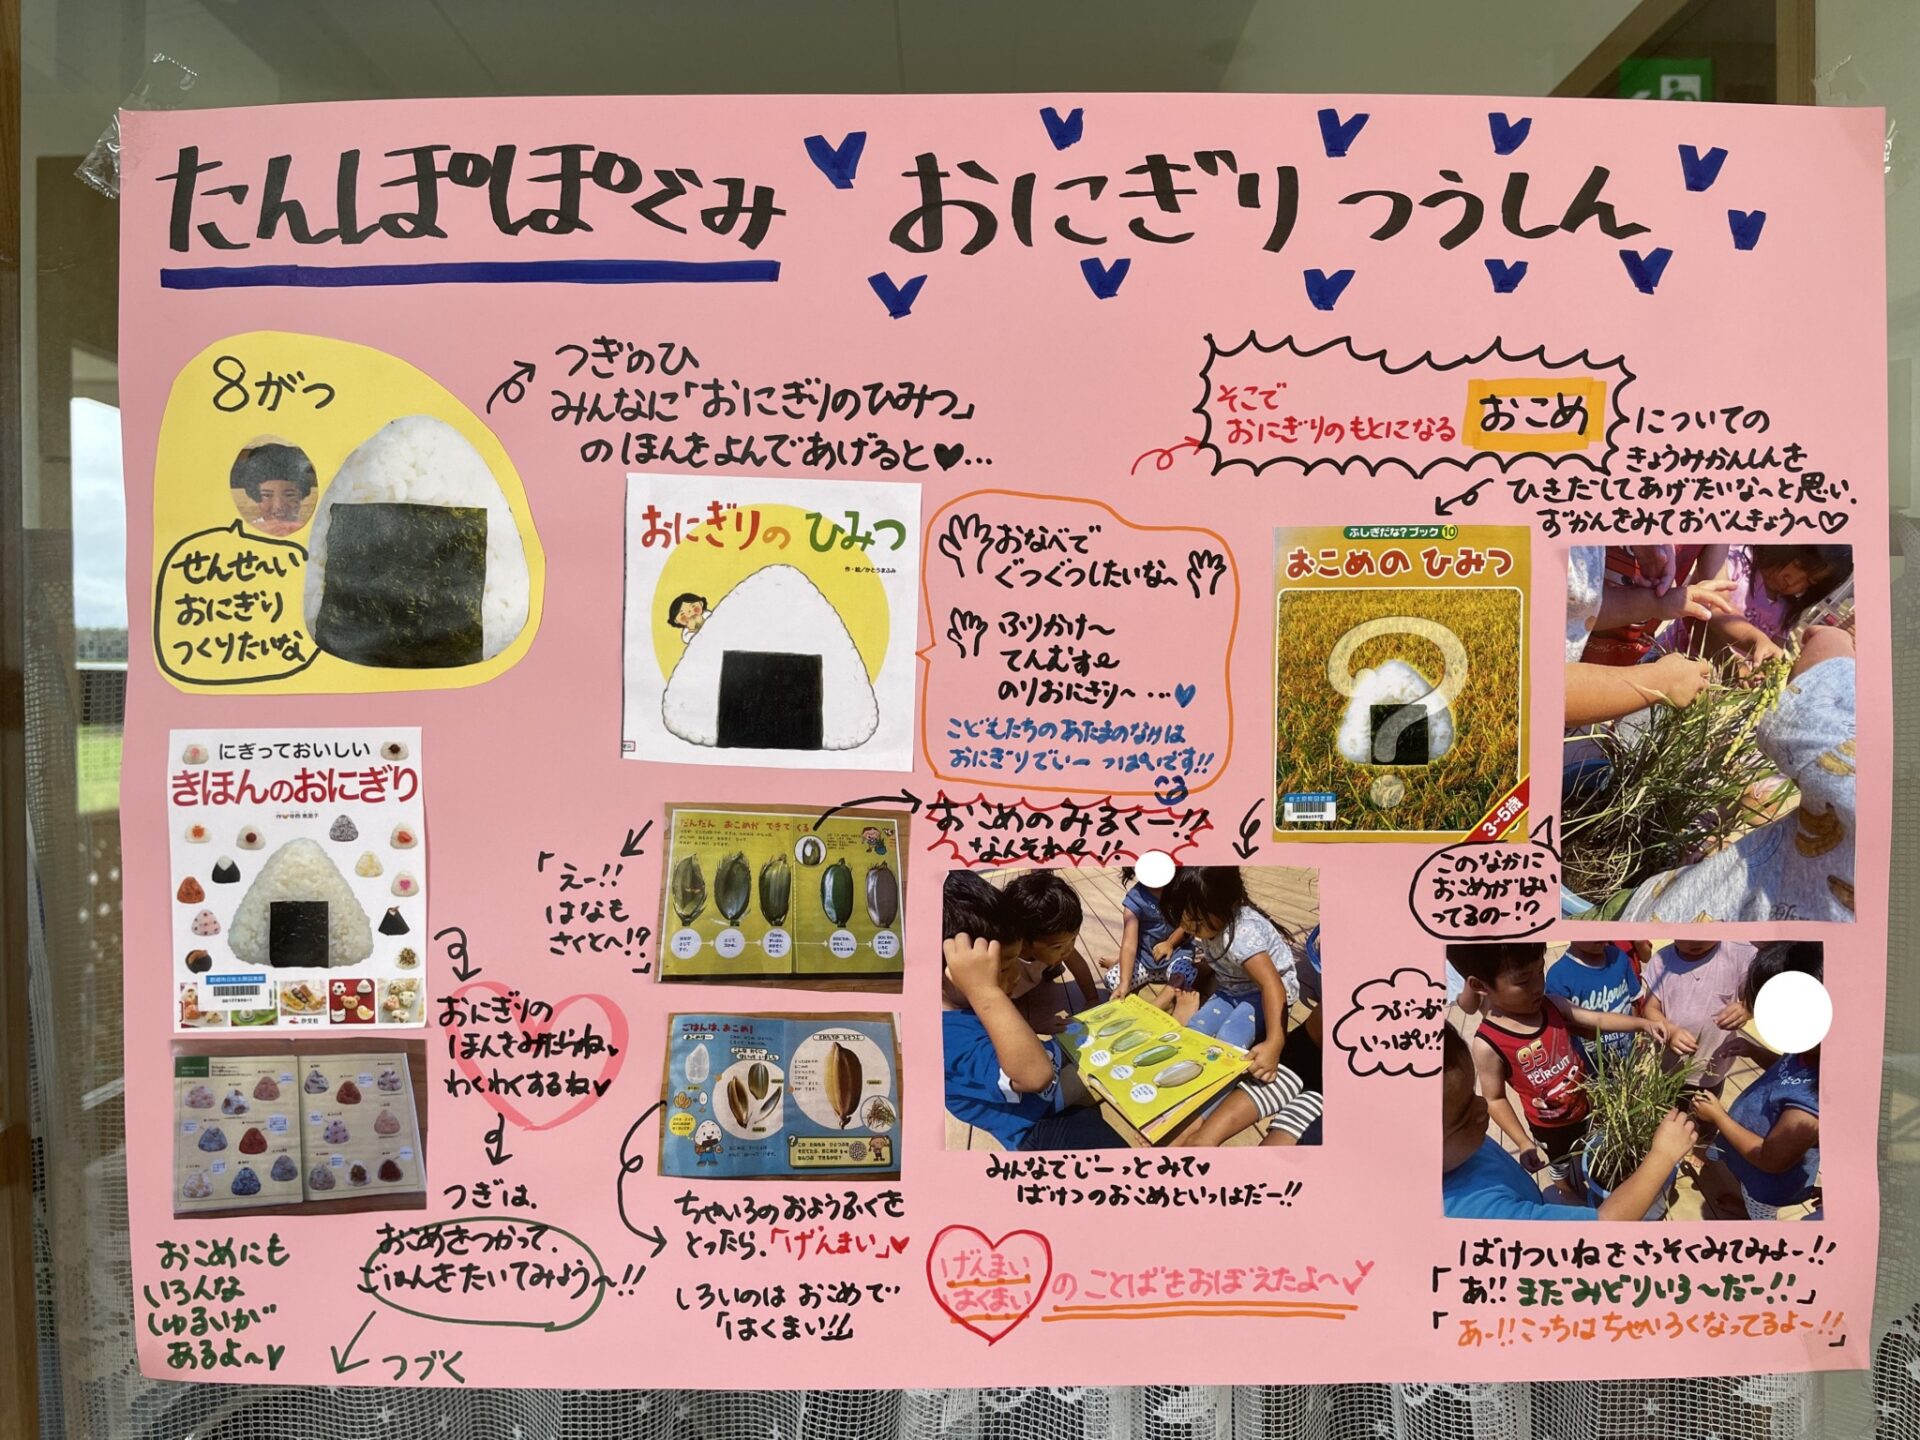 たんぽぽぐみ
おにぎりつうしん
8がつ
せんせ〜い
おにぎり
つくりたいな
つぎのひ
みんなに「おにぎりのひみつ」
のほんをよんであげると♥…
おにぎりの ひみつ
作・絵/かとうまふみ
おなべで
ぐつぐつしたいな〜
ふりかけ〜
てんむす〜
のりおにぎり〜…♥
こどもたちのあたまのなかは
おにぎりでいーっぱいです!!
そこで
おにぎりのもとになる
おこめ
についての
きょうみかんしんを
ひきだしてあげたいな〜と思い、
ずかんをみておべんきょう〜♡
ふしぎだな?ブック10
おこめの ひみつ
3~5歳
このなかに
おこめがはい
ってるのー!?
つぶつぶが
いっぱい!!
にぎっておいしい
きほんのおにぎり
おにぎりの
ほんをみたらね♥
わくわくするね♥
つぎは、
おこめをつかって、
ごはんをたいてみよう〜!!
つづく
おこめにも
いろんな
しゅるいが
あるよ〜♥
「えー!!
はなも
さくとへ!?」
だんだん おこめが できてくる
おこめのみるくー!!
なんそれ〜!!
ごはんは、おこめ!
ちゃいろのおようふくを
とったら、「げんまい」♥
しろいのは おこめで
「はくまい!!」
みんなでじーっとみて♥
ばけつのおこめといっしょだー!!
げんまい
はくまい
のことばをおぼえたよ〜♥
95
RICH CIRCUIT
California
ばけついねをさっそくみてみよー!!
「あ!!まだみどりいろ〜だー!!」
「あー!!こっちはちゃいろくなってるよ〜!!」